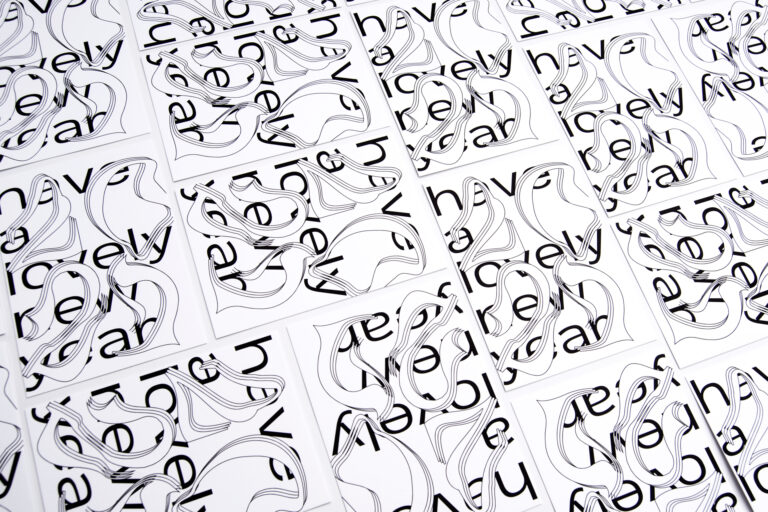 have
a
lovely
new
year
have
a
lovely
new
year
have
a
lovely
new
year
have
a
lovely
new
year
have
a
lovely
new
year
have
a
lovely
new
year
have
a
lovely
new
year
a
lovely
new
year
have
a
lovely
new
year
have
a
lovely
new
year
year
new
lovely
have
a